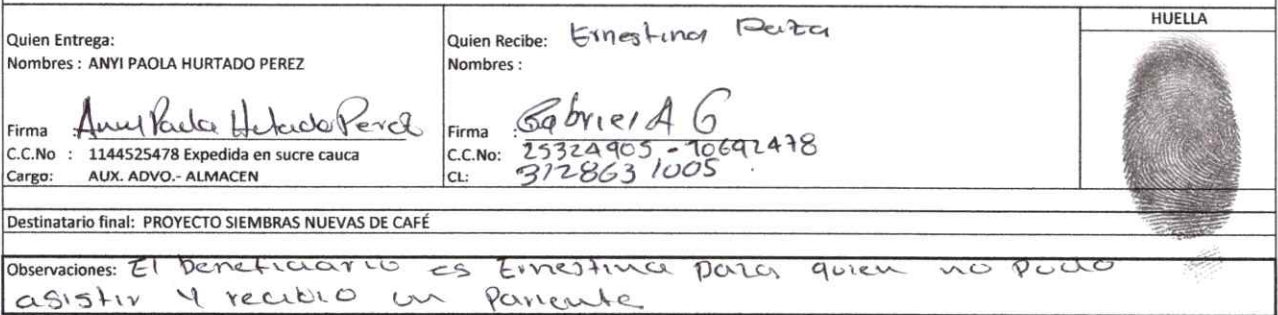 Quien Entrega:
Nombres : ANYI PAOLA HURTADO PEREZ
Firma : Anyi Paola Hurtado Perez
C.C.No : 1144525478 Expedida en sucre cauca
Cargo: AUX. ADVO.- ALMACEN
Quien Recibe: Ernestina Daza
Nombres :
Firma : Gabriel A G
C.C.No: 25324905 - 10692478
CL: 3128631005
HUELLA
Destinatario final: PROYECTO SIEMBRAS NUEVAS DE CAFÉ
Observaciones: El beneficiario es Ernestina Daza quien no pudo
asistir y recibio un Pariente